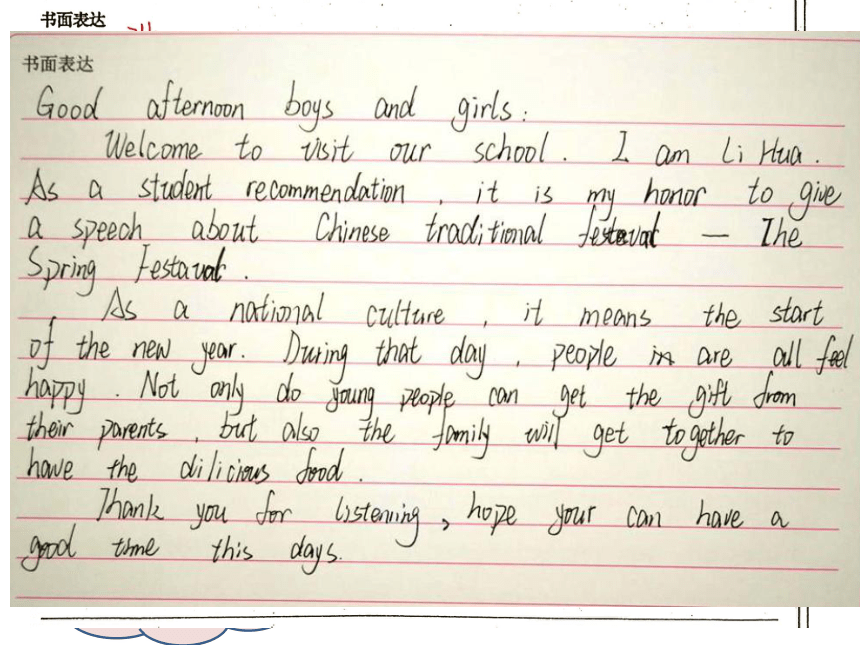 书面表达
书面表达
Good afternoon boys and girls:
Welcome to visit our school. I am Li Hua.
As a student recommendation, it is my honor to give
a speech about Chinese traditional festaval — The
Spring Festaval.
As a national culture, it means the start
of the new year. During that day, people in are all feel
happy. Not only do young people can get the gift from
their parents, but also the family will get together to
have the dilicious food.
Thank you for listenning, hope your can have a
good time this days.